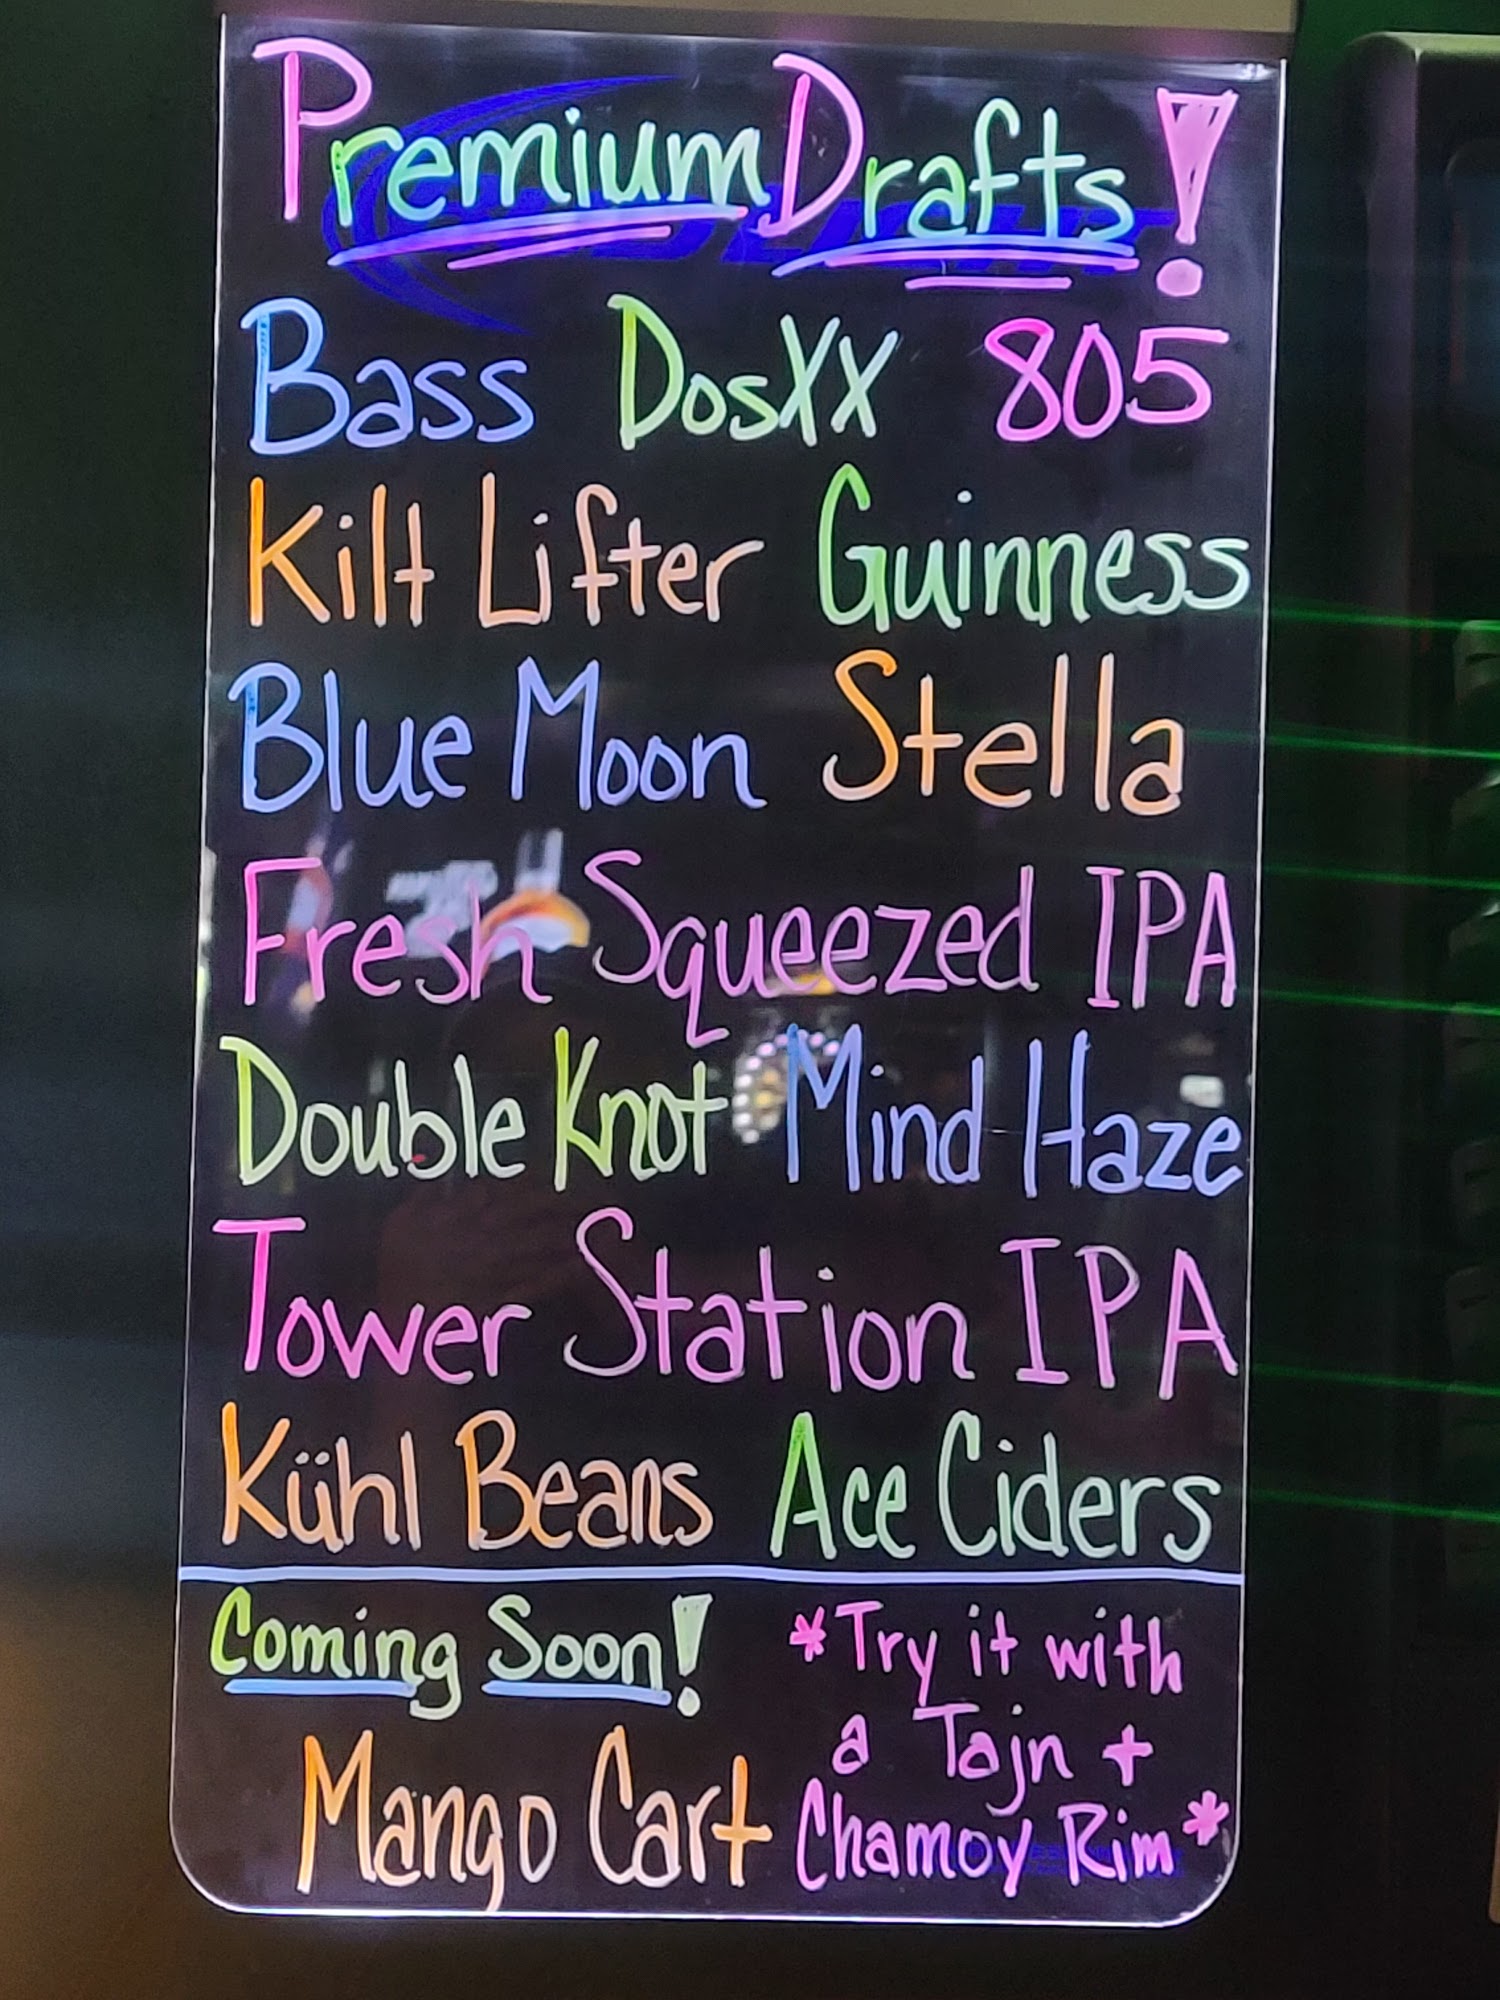 Premium Drafts!
Bass DosXX 805
Kilt Lifter Guinness
Blue Moon Stella
Fresh Squeezed IPA
Double Knot Mind Haze
Tower Station IPA
Kühl Beans Ace Ciders
Coming Soon!
Mango Cart
*Try it with
a Tajn +
Chamoy Rim*